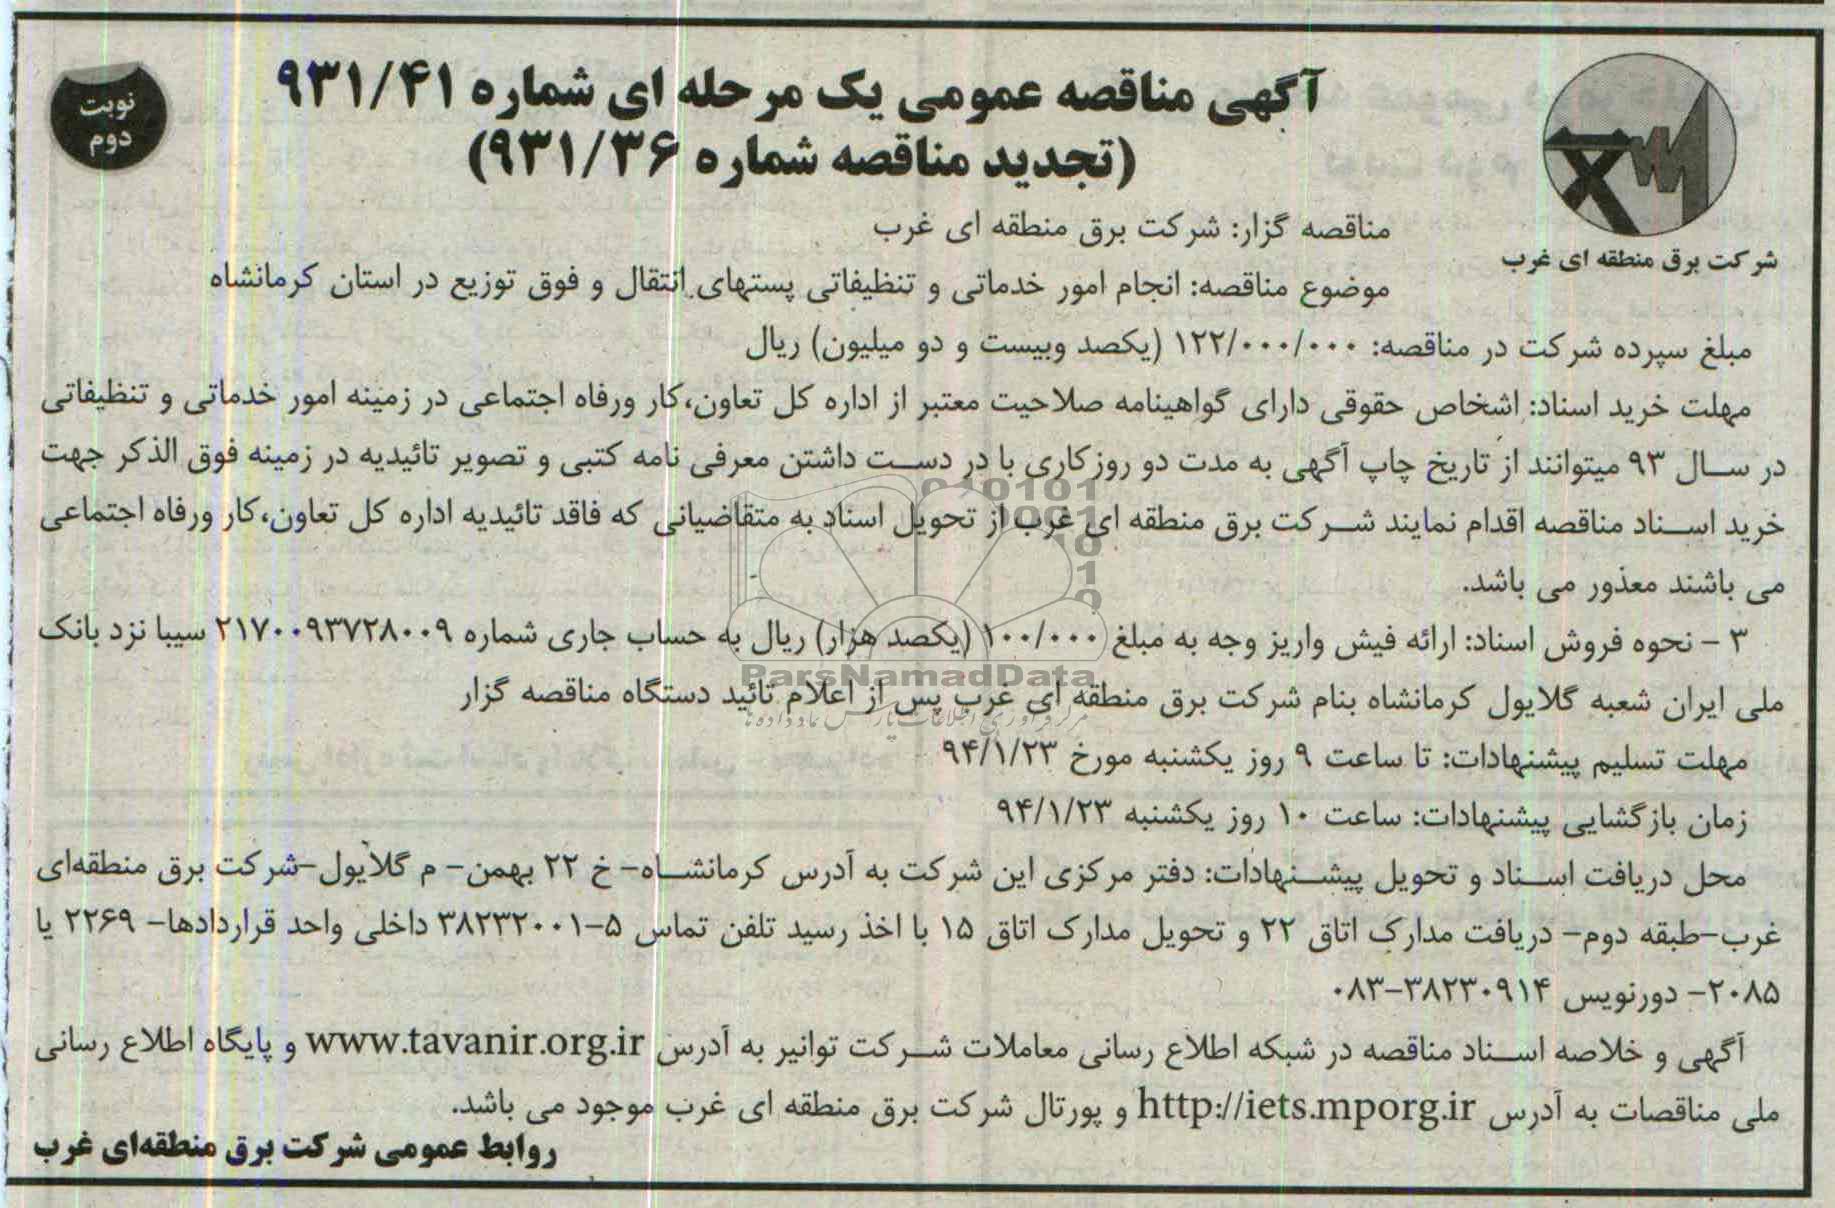 نوبت
دوم
آگهی مناقصه عمومی یک مرحله ای شماره ۹۳۱/۴۱
(تجدید مناقصه شماره ۹۳۱/۳۶)
شرکت برق منطقه ای غرب
مناقصه گزار: شرکت برق منطقه ای غرب
موضوع مناقصه: انجام امور خدماتی و تنظیفاتی پستهای انتقال و فوق توزیع در استان کرمانشاه
مبلغ سپرده شرکت در مناقصه: ۱۲۲/۰۰۰/۰۰۰ (یکصد وبیست و دو میلیون) ریال
مهلت خرید اسناد: اشخاص حقوقی دارای گواهینامه صلاحیت معتبر از اداره کل تعاون،کار ورفاه اجتماعی در زمینه امور خدماتی و تنظیفاتی
در سال ۹۳ میتوانند از تاریخ چاپ آگهی به مدت دو روزکاری با در دست داشتن معرفی نامه کتبی و تصویر تائیدیه در زمینه فوق الذکر جهت
خرید اسناد مناقصه اقدام نمایند شرکت برق منطقه ای غرب از تحویل اسناد به متقاضیانی که فاقد تائیدیه اداره کل تعاون،کار ورفاه اجتماعی
می باشند معذور می باشد.
۳ – نحوه فروش اسناد: ارائه فیش واریز وجه به مبلغ ۱۰۰/۰۰۰ (یکصد هزار) ریال به حساب جاری شماره ۲۱۷۰۰۹۳۷۲۸۰۰۹ سیبا نزد بانک
ملی ایران شعبه گلایول کرمانشاه بنام شرکت برق منطقه ای غرب پس از اعلام تائید دستگاه مناقصه گزار
مهلت تسلیم پیشنهادات: تا ساعت ۹ روز یکشنبه مورخ ۹۴/۱/۲۳
زمان بازگشایی پیشنهادات: ساعت ۱۰ روز یکشنبه ۹۴/۱/۲۳
محل دریافت اسناد و تحویل پیشنهادات: دفتر مرکزی این شرکت به آدرس کرمانشاه– خ ۲۲ بهمن– م گلایول–شرکت برق منطقه‌ای
غرب–طبقه دوم– دریافت مدارک اتاق ۲۲ و تحویل مدارک اتاق ۱۵ با اخذ رسید تلفن تماس ۵–۳۸۲۳۲۰۰۱ داخلی واحد قراردادها– ۲۲۶۹ یا
۲۰۸۵– دورنویس ۳۸۲۳۰۹۱۴–۰۸۳
آگهی و خلاصه اسناد مناقصه در شبکه اطلاع رسانی معاملات شرکت توانیر به آدرس www.tavanir.org.ir و پایگاه اطلاع رسانی
ملی مناقصات به آدرس http://iets.mporg.ir و پورتال شرکت برق منطقه ای غرب موجود می باشد.
روابط عمومی شرکت برق منطقه‌ای غرب
ParsNamadData